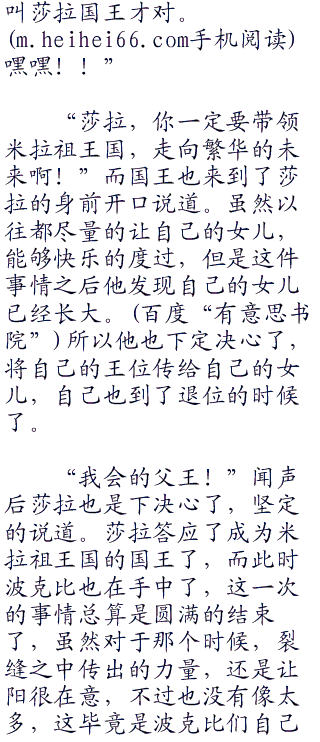 叫莎拉国王才对。
(m.heihei66.com手机阅读)
嘿嘿！！”
“莎拉，你一定要带领
米拉祖王国，走向繁华的未
来啊！”而国王也来到了莎
拉的身前开口说道。虽然以
往都尽量的让自己的女儿，
能够快乐的度过，但是这件
事情之后他发现自己的女儿
已经长大。(百度“有意思书
院”)所以他也下定决心了，
将自己的王位传给自己的女
儿，自己也到了退位的时候
了。
“我会的父王！”闻声
后莎拉也是下决心了，坚定
的说道。莎拉答应了成为米
拉祖王国的国王了，而此时
波克比也在手中了，这一次
的事情总算是圆满的结束
了，虽然对于那个时候，裂
缝之中传出的力量，还是让
阳很在意，不过也没有像太
多，这毕竟是波克比们自己